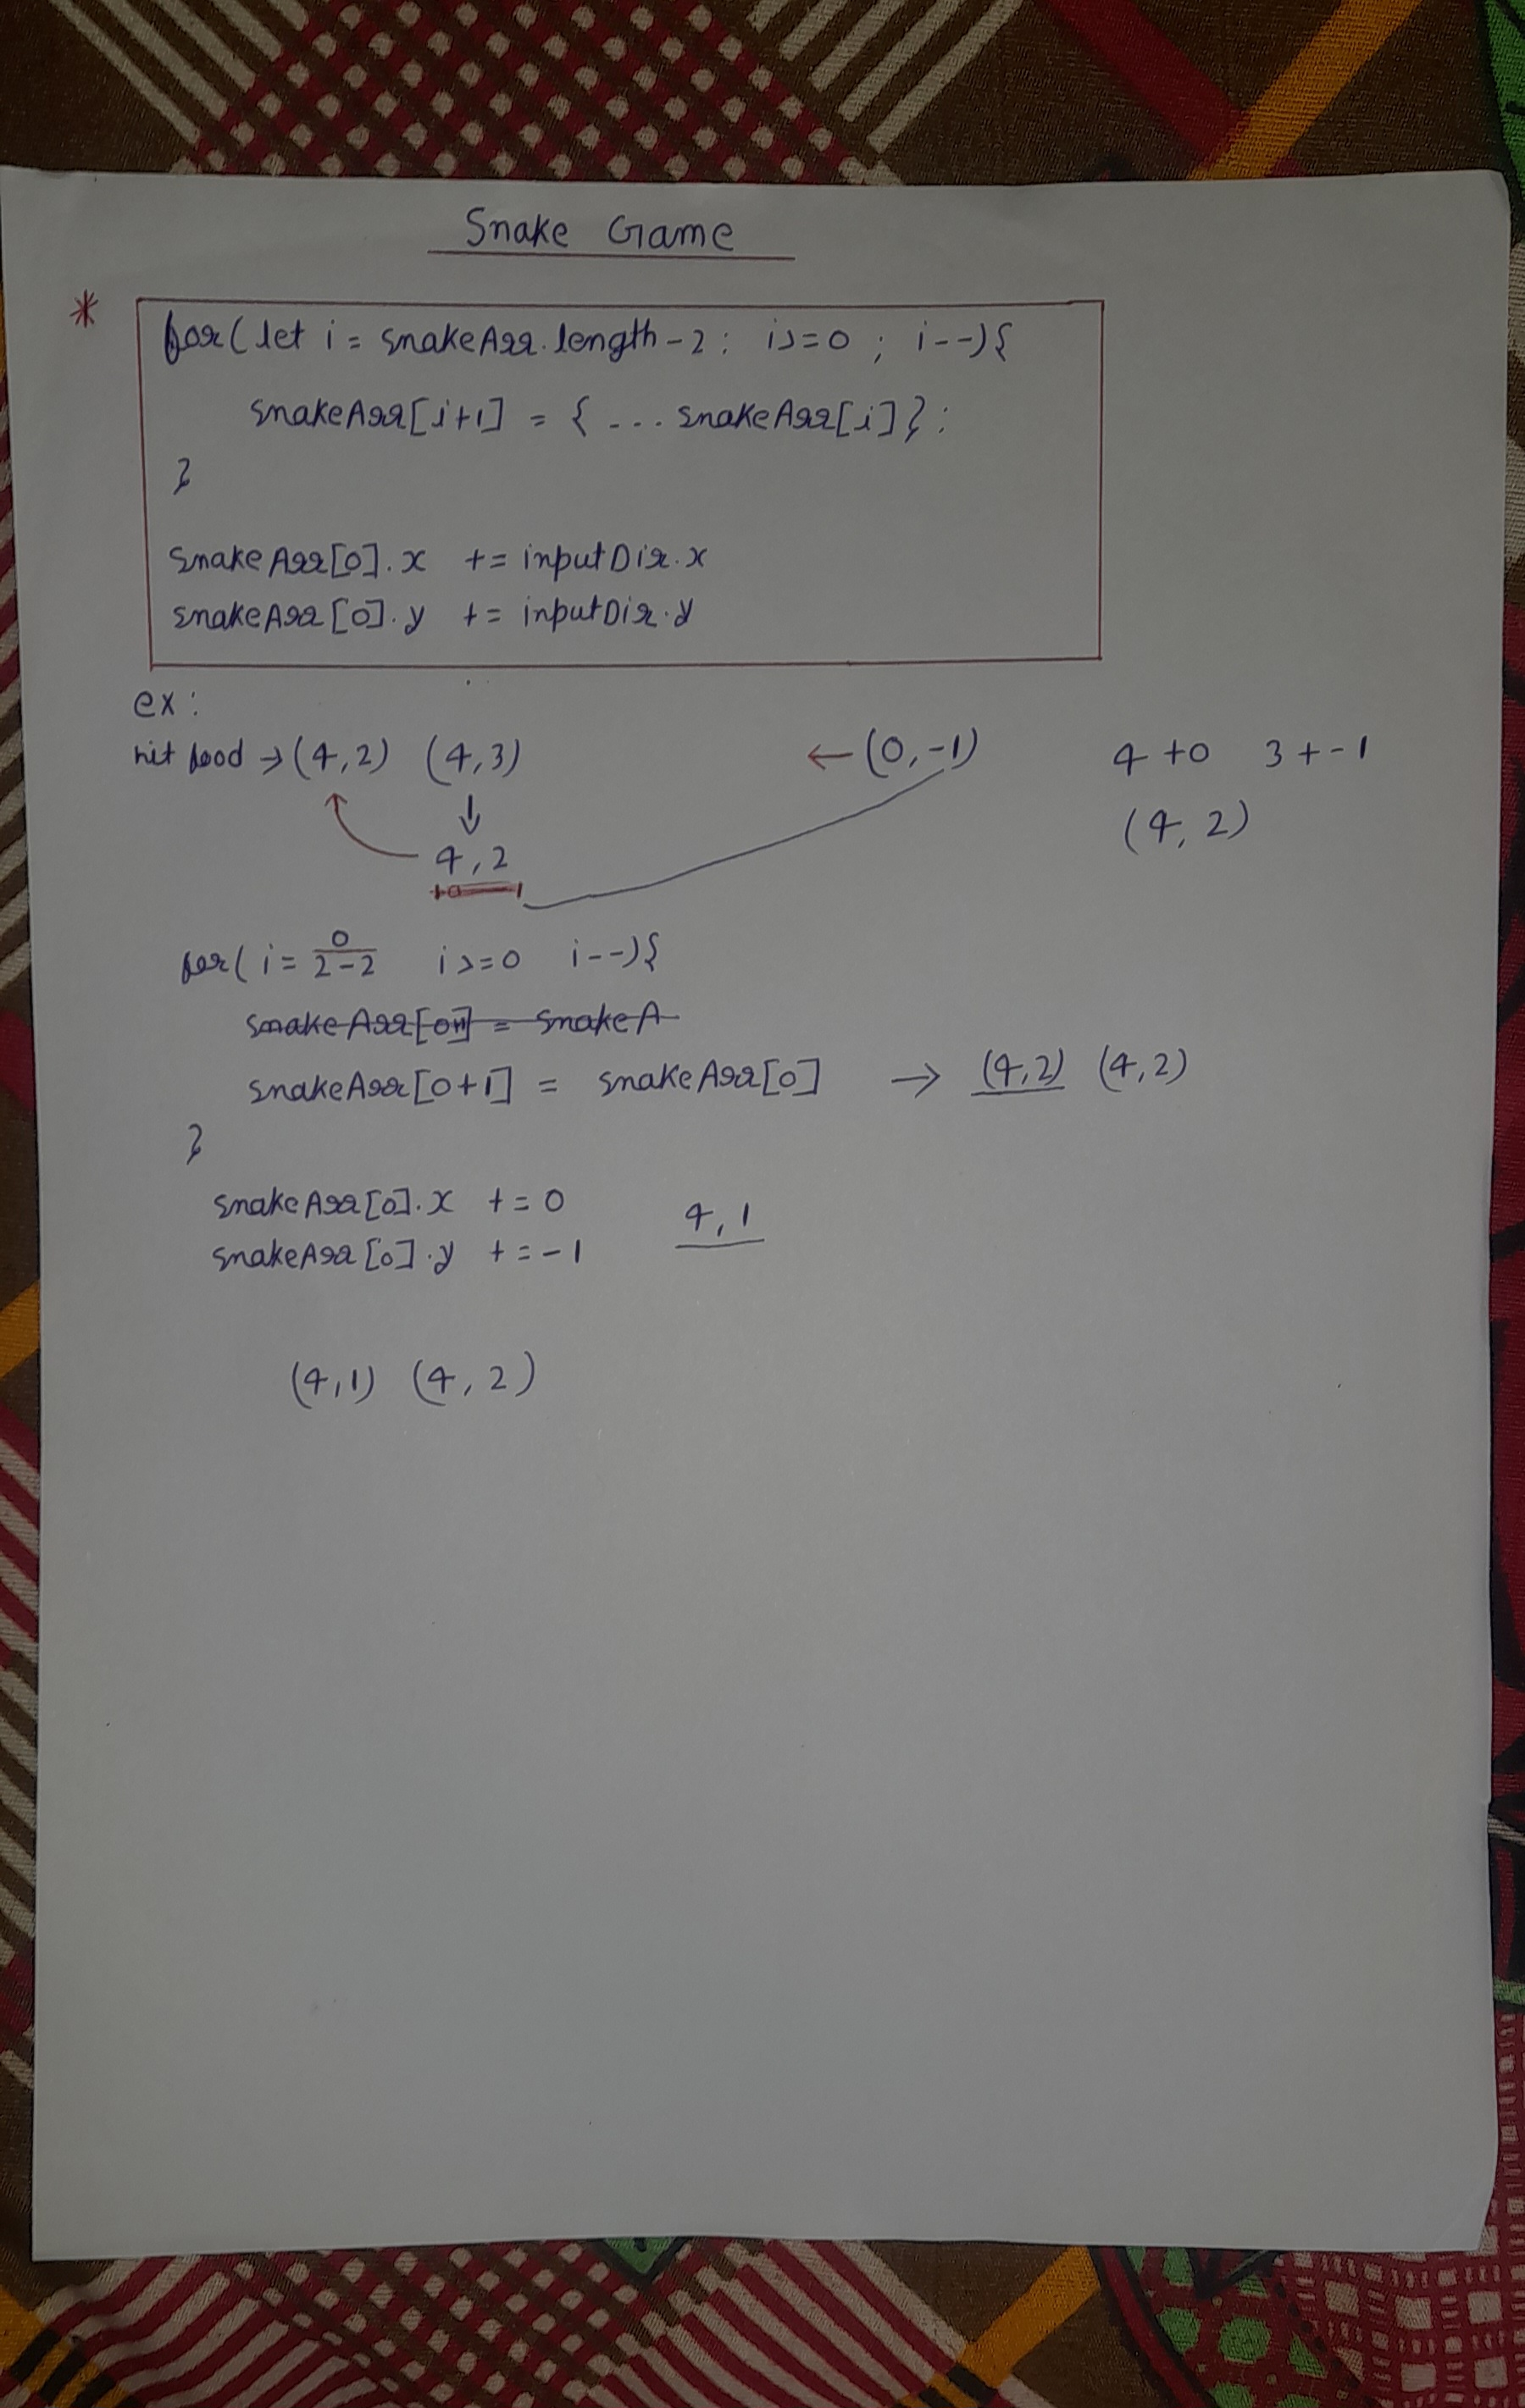 Snake Game
* for(let i = snakeArr.length-2; i>=0; i--){
snakeArr[i+1] = {...snakeArr[i]};
}
snakeArr[0].x += inputDir.x
snakeArr[0].y += inputDir.y
ex:
hit food → (4,2) (4,3) ← (0,-1) 4+0 3+-1
↓ (4,2)
4,2
+0 -1
for(i = 0 i>=0 i--){
2-2
snakeArr[0+1] = snakeA
snakeArr[0+1] = snakeArr[0] → (4,2) (4,2)
}
snakeArr[0].x += 0 4,1
snakeArr[0].y += -1
(4,1) (4,2)